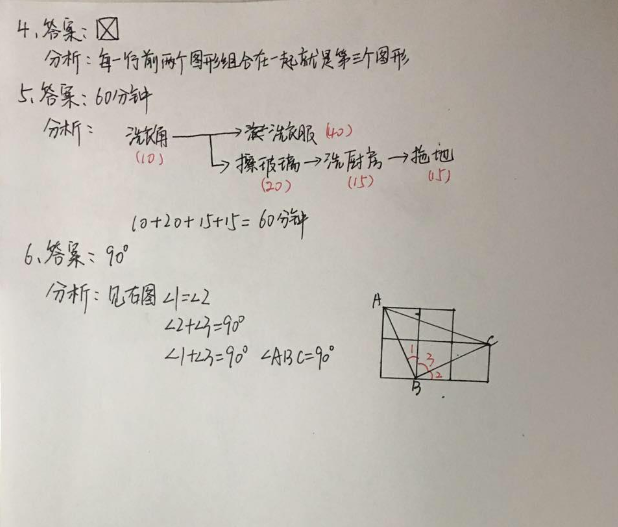 4、答案：
分析：每一行前两个图形组合在一起就是第三个图形
5、答案：60分钟
分析：
洗衣服 (40)
(10)
擦玻璃→洗厨房→拖地
(20) (15) (15)
10+20+15+15=60分钟
6、答案：90°
分析：见右图 ∠1=∠2
∠2+∠3=90°
∠1+∠3=90° ∠ABC=90°
A
C
1 3 2
B